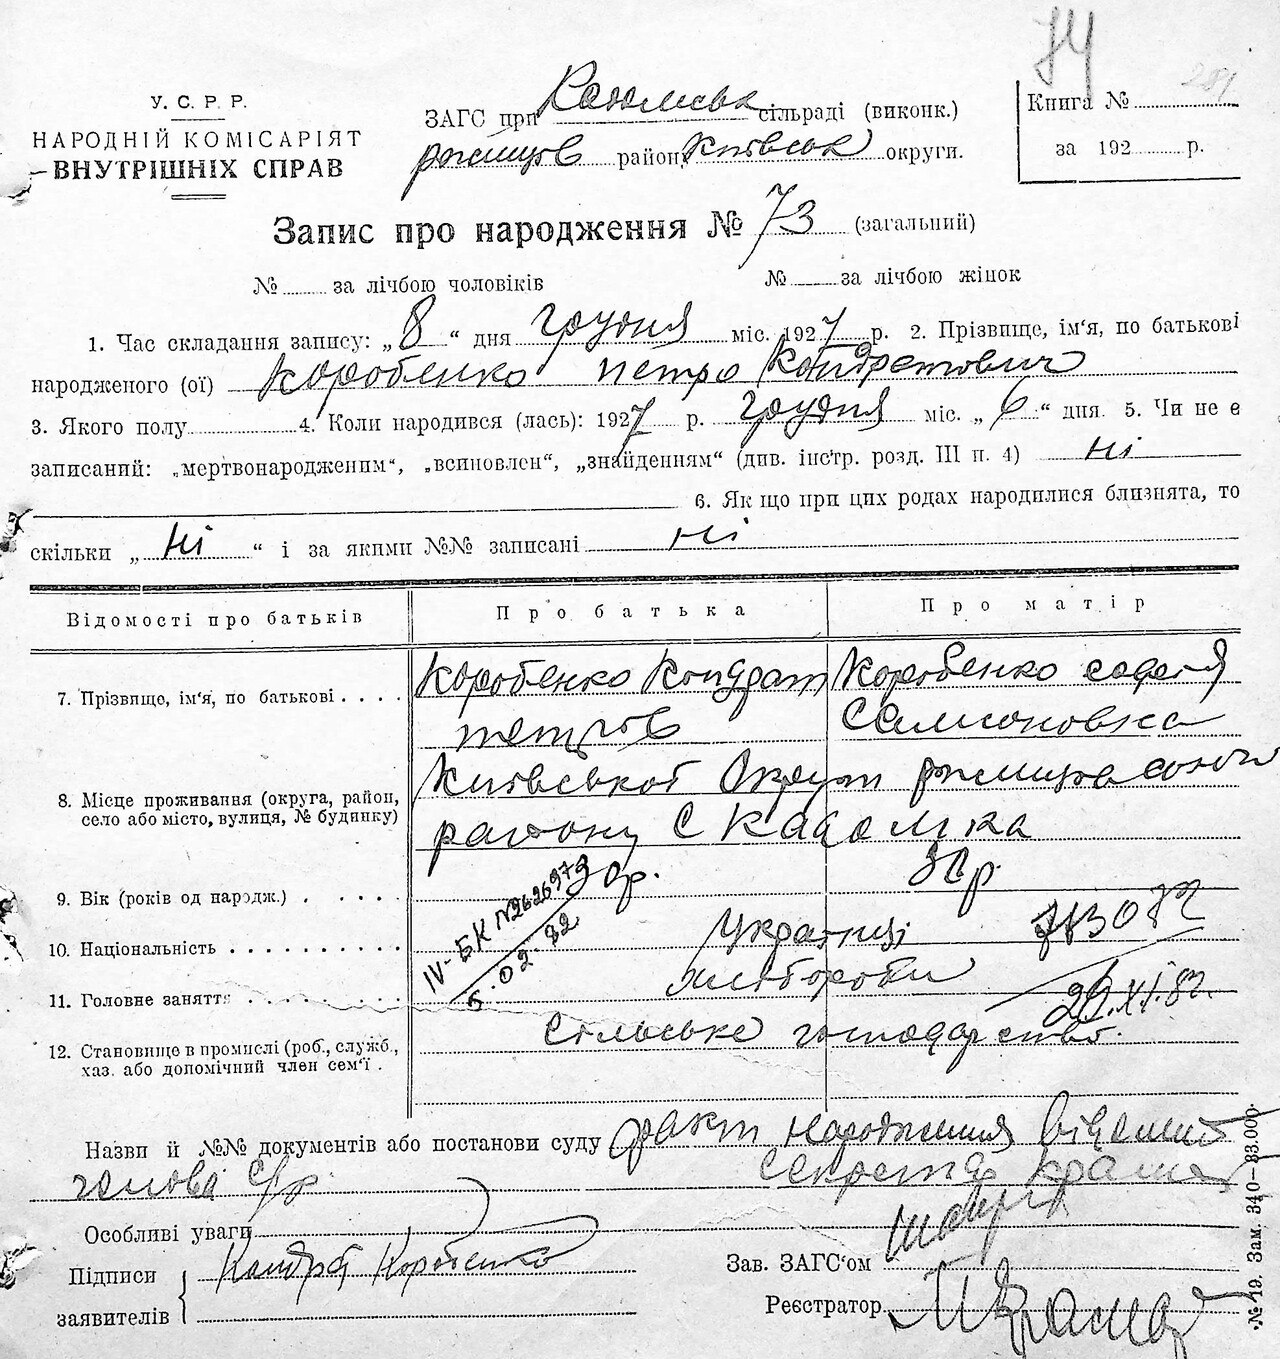 74
281
У. С. Р. Р.
НАРОДНІЙ КОМІСАРІЯТ
ВНУТРІШНІХ СПРАВ
ЗАГС при сільраді (виконк.)
ржищів район, київськ округи.
Книга №
за 192 р.
Запис про народження № 73 (загальний)
№ за лічбою чоловіків № за лічбою жінок
1. Час складання запису: „ 8 “ дня грудня міс. 1927 р. 2. Прізвище, ім‘я, по батькові
народженого (ої) Коробенко петро Кондратович
3. Якого полу 4. Коли народився (лась): 1927 р. грудня міс. „ 6 “ дня. 5. Чи не є
записаний: „мертвонародженим“, „всиновлен“, „знайденням“ (див. інстр. розд. III п. 4) Ні
6. Якщо при цих родах народилися близнята, то
скільки „ Ні “ і за якими №№ записані Ні
Відомості про батьків Про батька Про матір
7. Прізвище, ім‘я, по батькові . . . . Коробенко Кондрат петрів Коробенко софія Самсоновна
8. Місце проживання (округа, район, село або місто, вулиця, № будинку) Київської Округи району С
9. Вік (років од народж.) . . . . . 30р. 30р
IV-БК №2626973
5.02.82
10. Національність . . . . . . . . . . Українці
11. Головне заняття . . . . . . . . хлібороби
29.XI.82.
12. Становище в промислі (роб., служб., хаз. або допомічний член сем‘ї . Сільське господарство.
Назви й №№ документів або постанови суду факт народження
голова с/р секретар
Особливі уваги
Підписи заявителів Кондрат Коробенко
Зав. ЗАГС‘ом
Реєстратор
№ 19. Зам. 340—33.000.